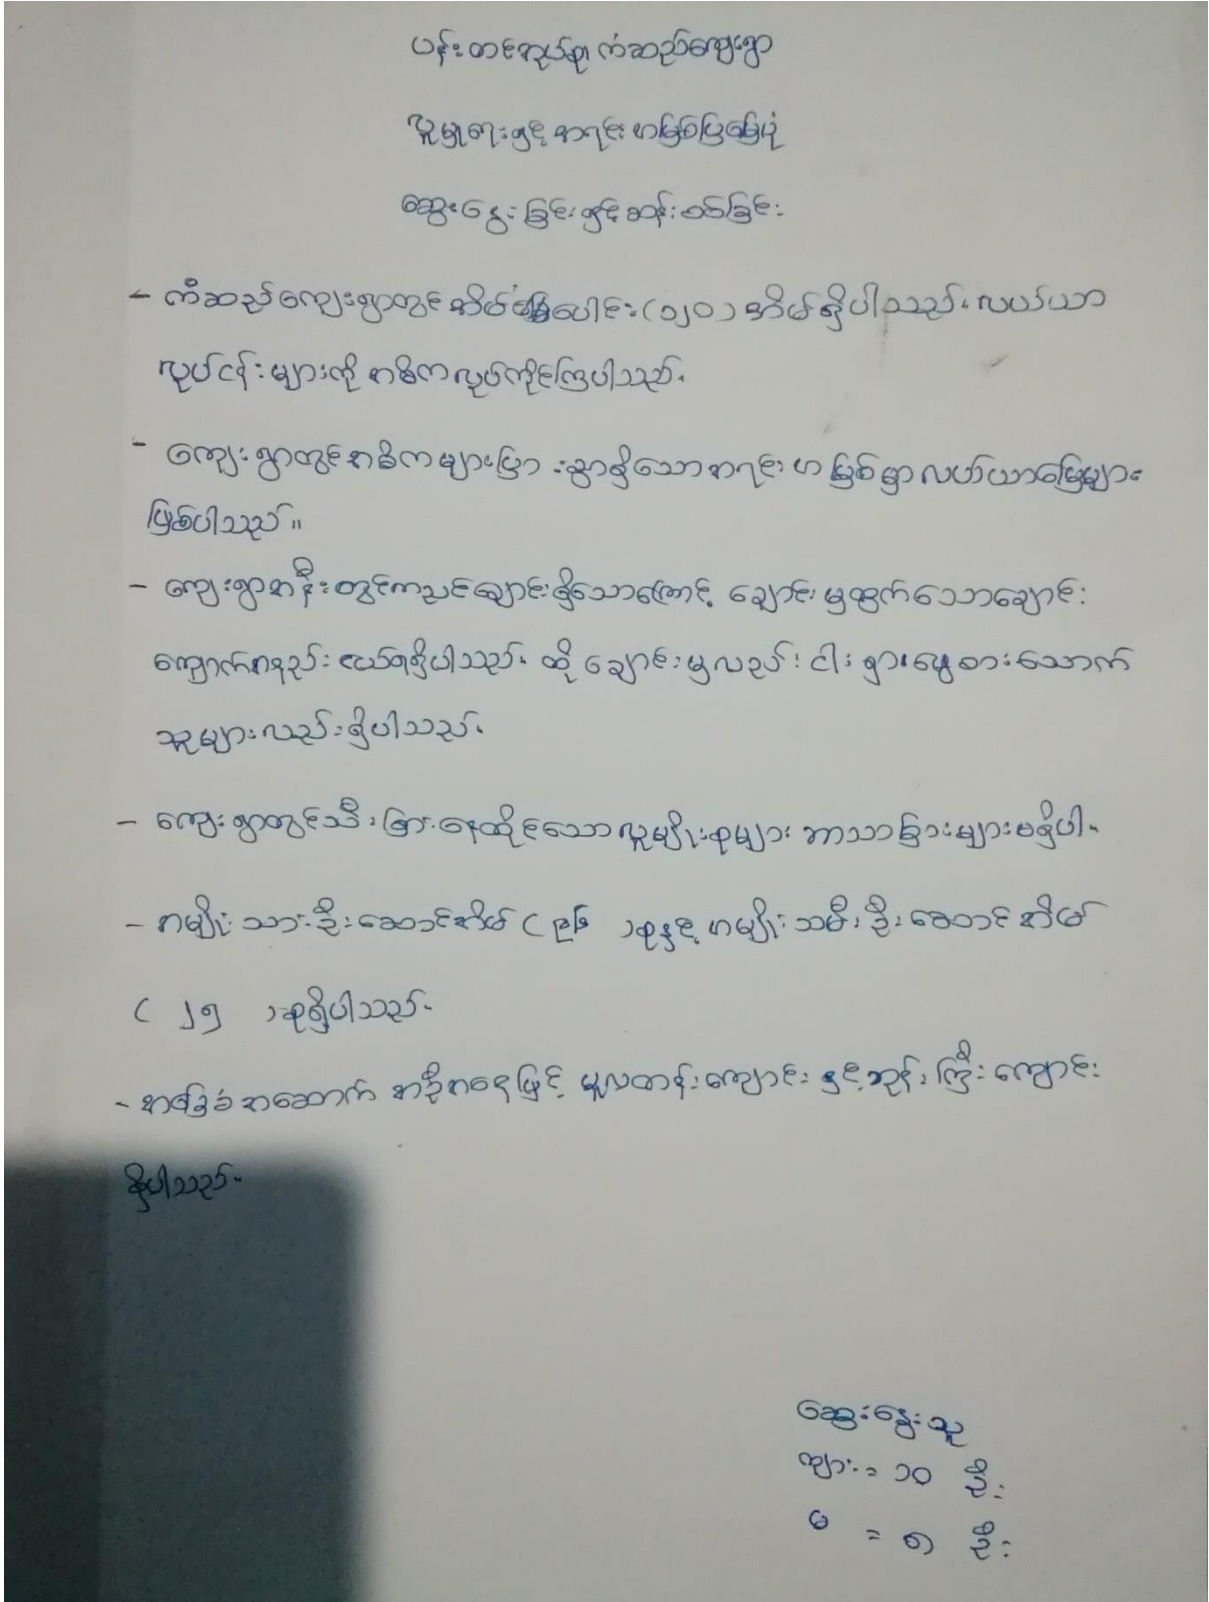 ပန်းတင်အုပ်စု၊ ကံဆည်ကျေးရွာ
လူမှုရေးနှင့် အရင်းအမြစ်ပြမြေပုံ
ဆွေးနွေးခြင်းနှင့်ဆန်းစစ်ခြင်း
- ကံဆည်ကျေးရွာတွင် အိမ်ခြေပေါင်း (၁၂၀) အိမ်ရှိပါသည်။ လယ်ယာ
လုပ်ငန်းများကို အဓိကလုပ်ကိုင်ကြပါသည်။
- ကျေးရွာတွင်အဓိကများပြားစွာရှိသောအရင်းအမြစ်မှာလယ်ယာမြေများ
ဖြစ်ပါသည်။
- ကျေးရွာအနီးတွင်ကညင်ချောင်းရှိသောကြောင့် ချောင်းမှထွက်သောချောင်း
ကျောက်အနည်းငယ်ရရှိပါသည်။ ထိုချောင်းမှလည်း ငါးရှာဖွေစားသောက်
သူများလည်းရှိပါသည်။
- ကျေးရွာတွင်သီးခြားနေထိုင်သောလူမျိုးစုများ ဘာသာခြားများမရှိပါ။
- အမျိုးသားဦးဆောင်အိမ် ( ၉၆ )စုနှင့် အမျိုးသမီးဦးဆောင်အိမ်
( ၂၅ )စုရှိပါသည်။
- အခြေခံအဆောက်အဦအနေဖြင့် မူလတန်းကျောင်းနှင့်ဘုန်းကြီးကျောင်း
ရှိပါသည်။
ဆွေးနွေးသူ
ကျား = ၁၀ ဦး
မ = ၈ ဦး